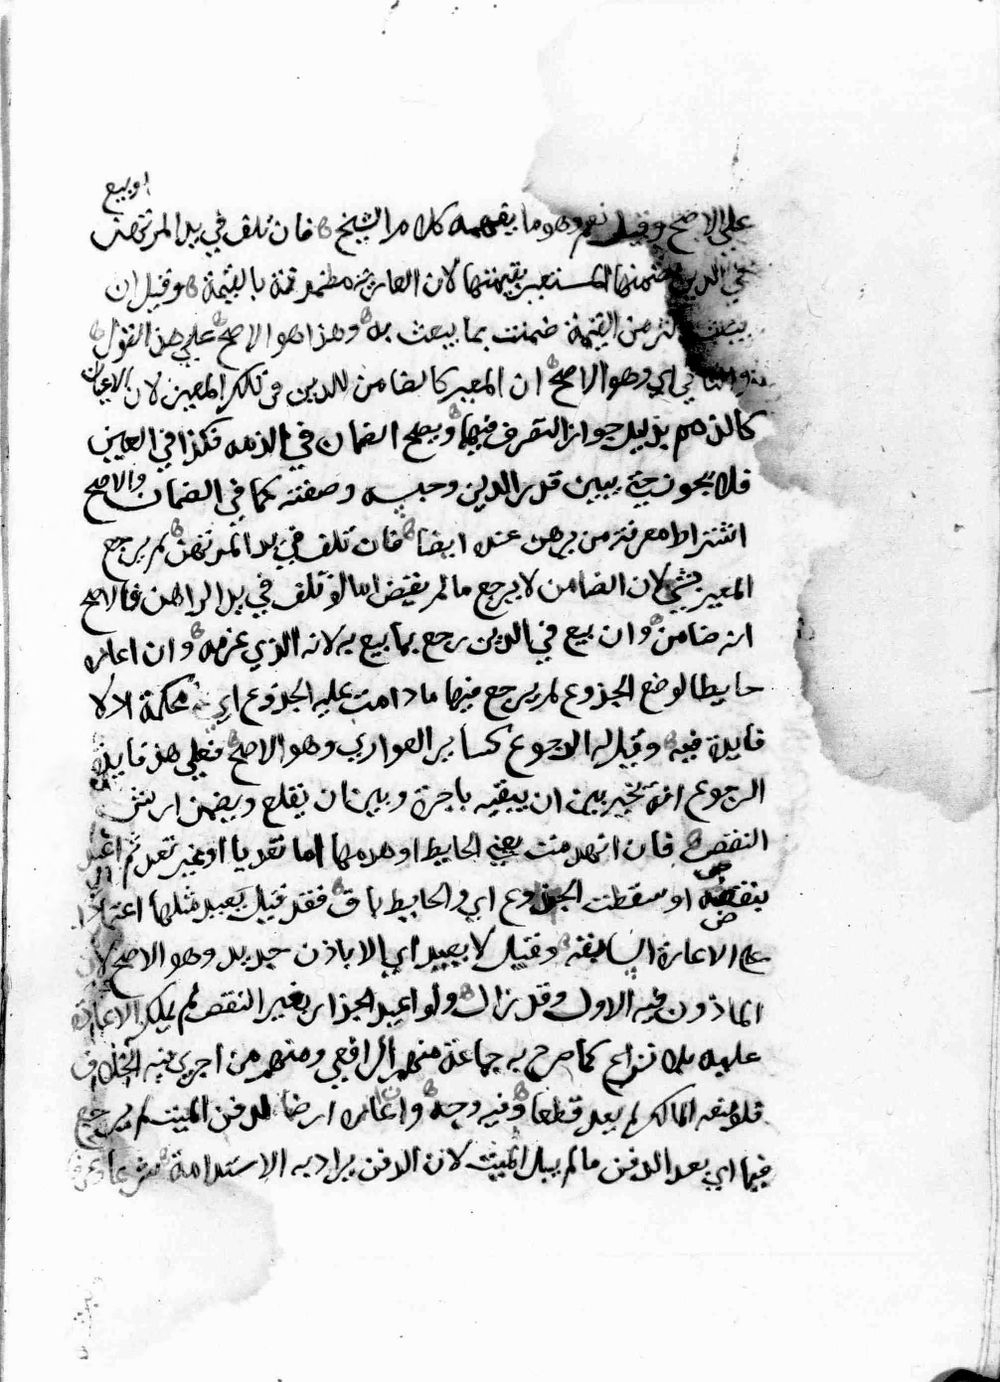 او بيع
علي الاصح وقيل نعم وهو ما يفهمه كلام الشيخ فان تلف في يد المرتهن
في الدين ضمنها المستعير بقيمتها لان العارية مضمونة بالقيمة وقيل ان
بيعت باكثر من القيمة ضمنت بما بيعت به وهذا هو الاصح علي هذا القول
والثاني اي وهو الاصح ان المعير كالضامن للدين في تلك العين لان الاعيان
كالذمم بدليل جواز التصرف فيهما ويصح الضمان في الذمه فكذا في العين
فلا يجوز حتي يبين قدر الدين وجنسه وصفته كما في الضمان والاصح
اشتراط معرفة من يرهن عنده ايضا فان تلف في يد المرتهن لم يرجع
المعير بشي لان الضامن لا يرجع ما لم يقبض اما لو تلف في يد الراهن فالاصح
انه ضامن وان بيع في الدين رجع بما بيع به لانه الذي غرمه وان اعاره
حايطا لوضع الجذوع لم يرجع فيها ما دامت عليه الجذوع اي محكمة اذ لا
فايدة فيه وقيل له الرجوع كساير العواري وهو الاصح فعلي هذا فايدة
الرجوع انه يخير بين ان يبقيه باجرة وبين ان يقلع ويضمن ارش
النقص فان انهدمت يعني الحايط او هدمها اما تعديا او غير تعد ثم اعيد
بنقضه او سقطت الجذوع اي والحايط باق فقد قيل يعيد مثلها اعتمادا
علي الاعارة السابقة وقيل لا يعيد اي الا باذن جديد وهو الاصح لان
الماذون فيه الاول وقد زال ولو اعيد الجدار بغير النقض لم يملك الاعادة
عليه بلا نزاع كما صرح به جماعة منهم الرافعي ومنهم من اجري فيه الخلاف
فلو منعه المالك لم يعد قطعا وفيه وجه وان اعاره ارضا لدفن الميت لم يرجع
فيها اي بعد الدفن ما لم يبل الميت لان الدفن يراد به الاستدامة شرعا